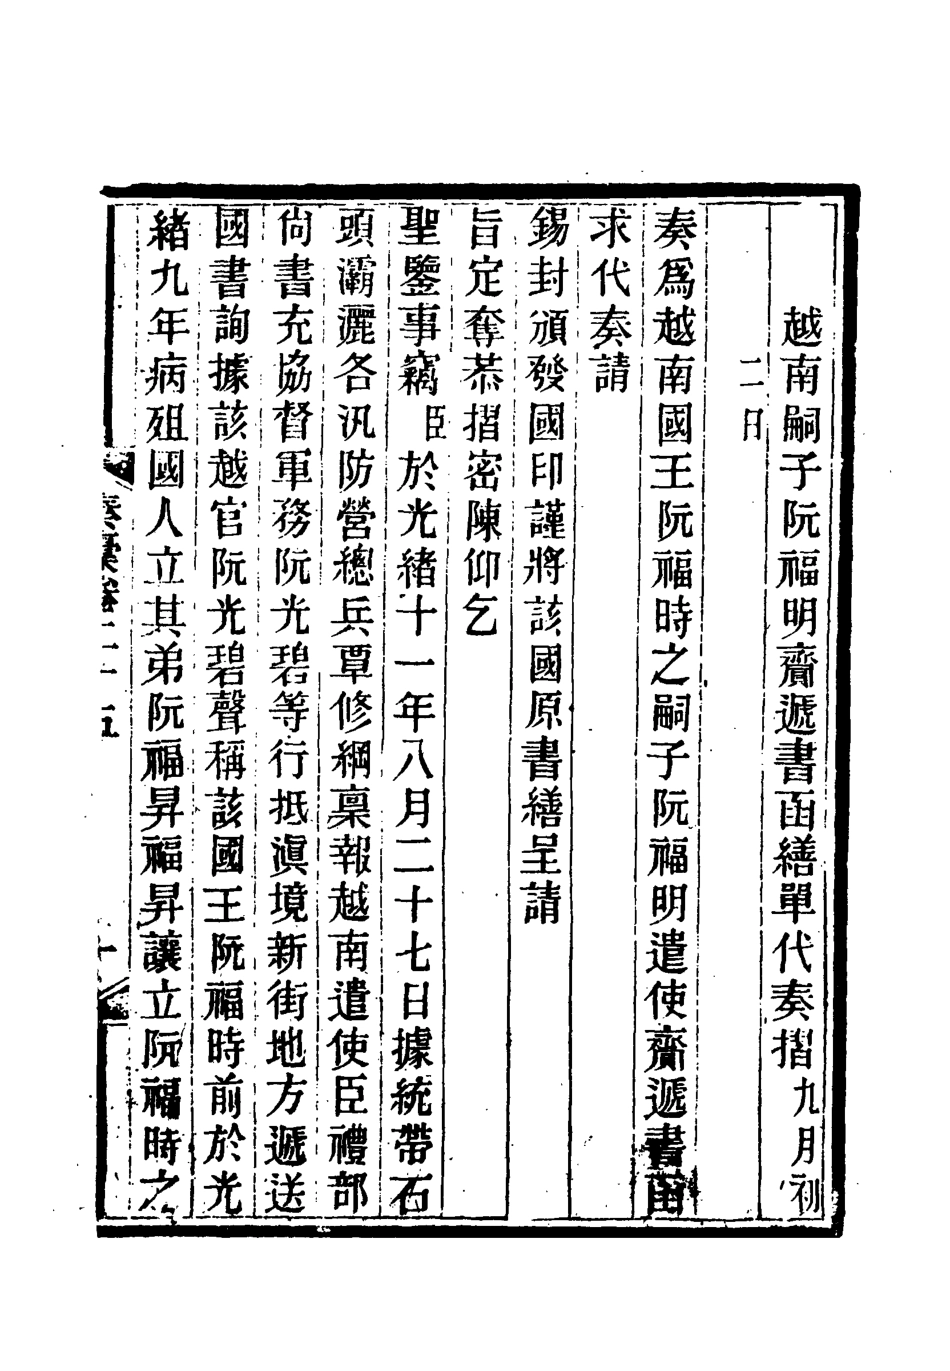 越南嗣子阮福明齎遞書函繕單代奏摺九月初
二日
奏爲越南國王阮福時之嗣子阮福明遣使齎遞書函
求代奏請
錫封頒發國印謹將該國原書繕呈請
旨定奪恭摺密陳仰乞
聖鑒事竊臣於光緒十一年八月二十七日據統帶石
頭灞灑各汛防營總兵覃修綱稟報越南遣使臣禮部
尙書充協督軍務阮光碧等行抵滇境新街地方遞送
國書詢據該越官阮光碧聲稱該國王阮福時前於光
緒九年病殂國人立其弟阮福昇福昇讓立阮福時之
奏稾卷二十五
十